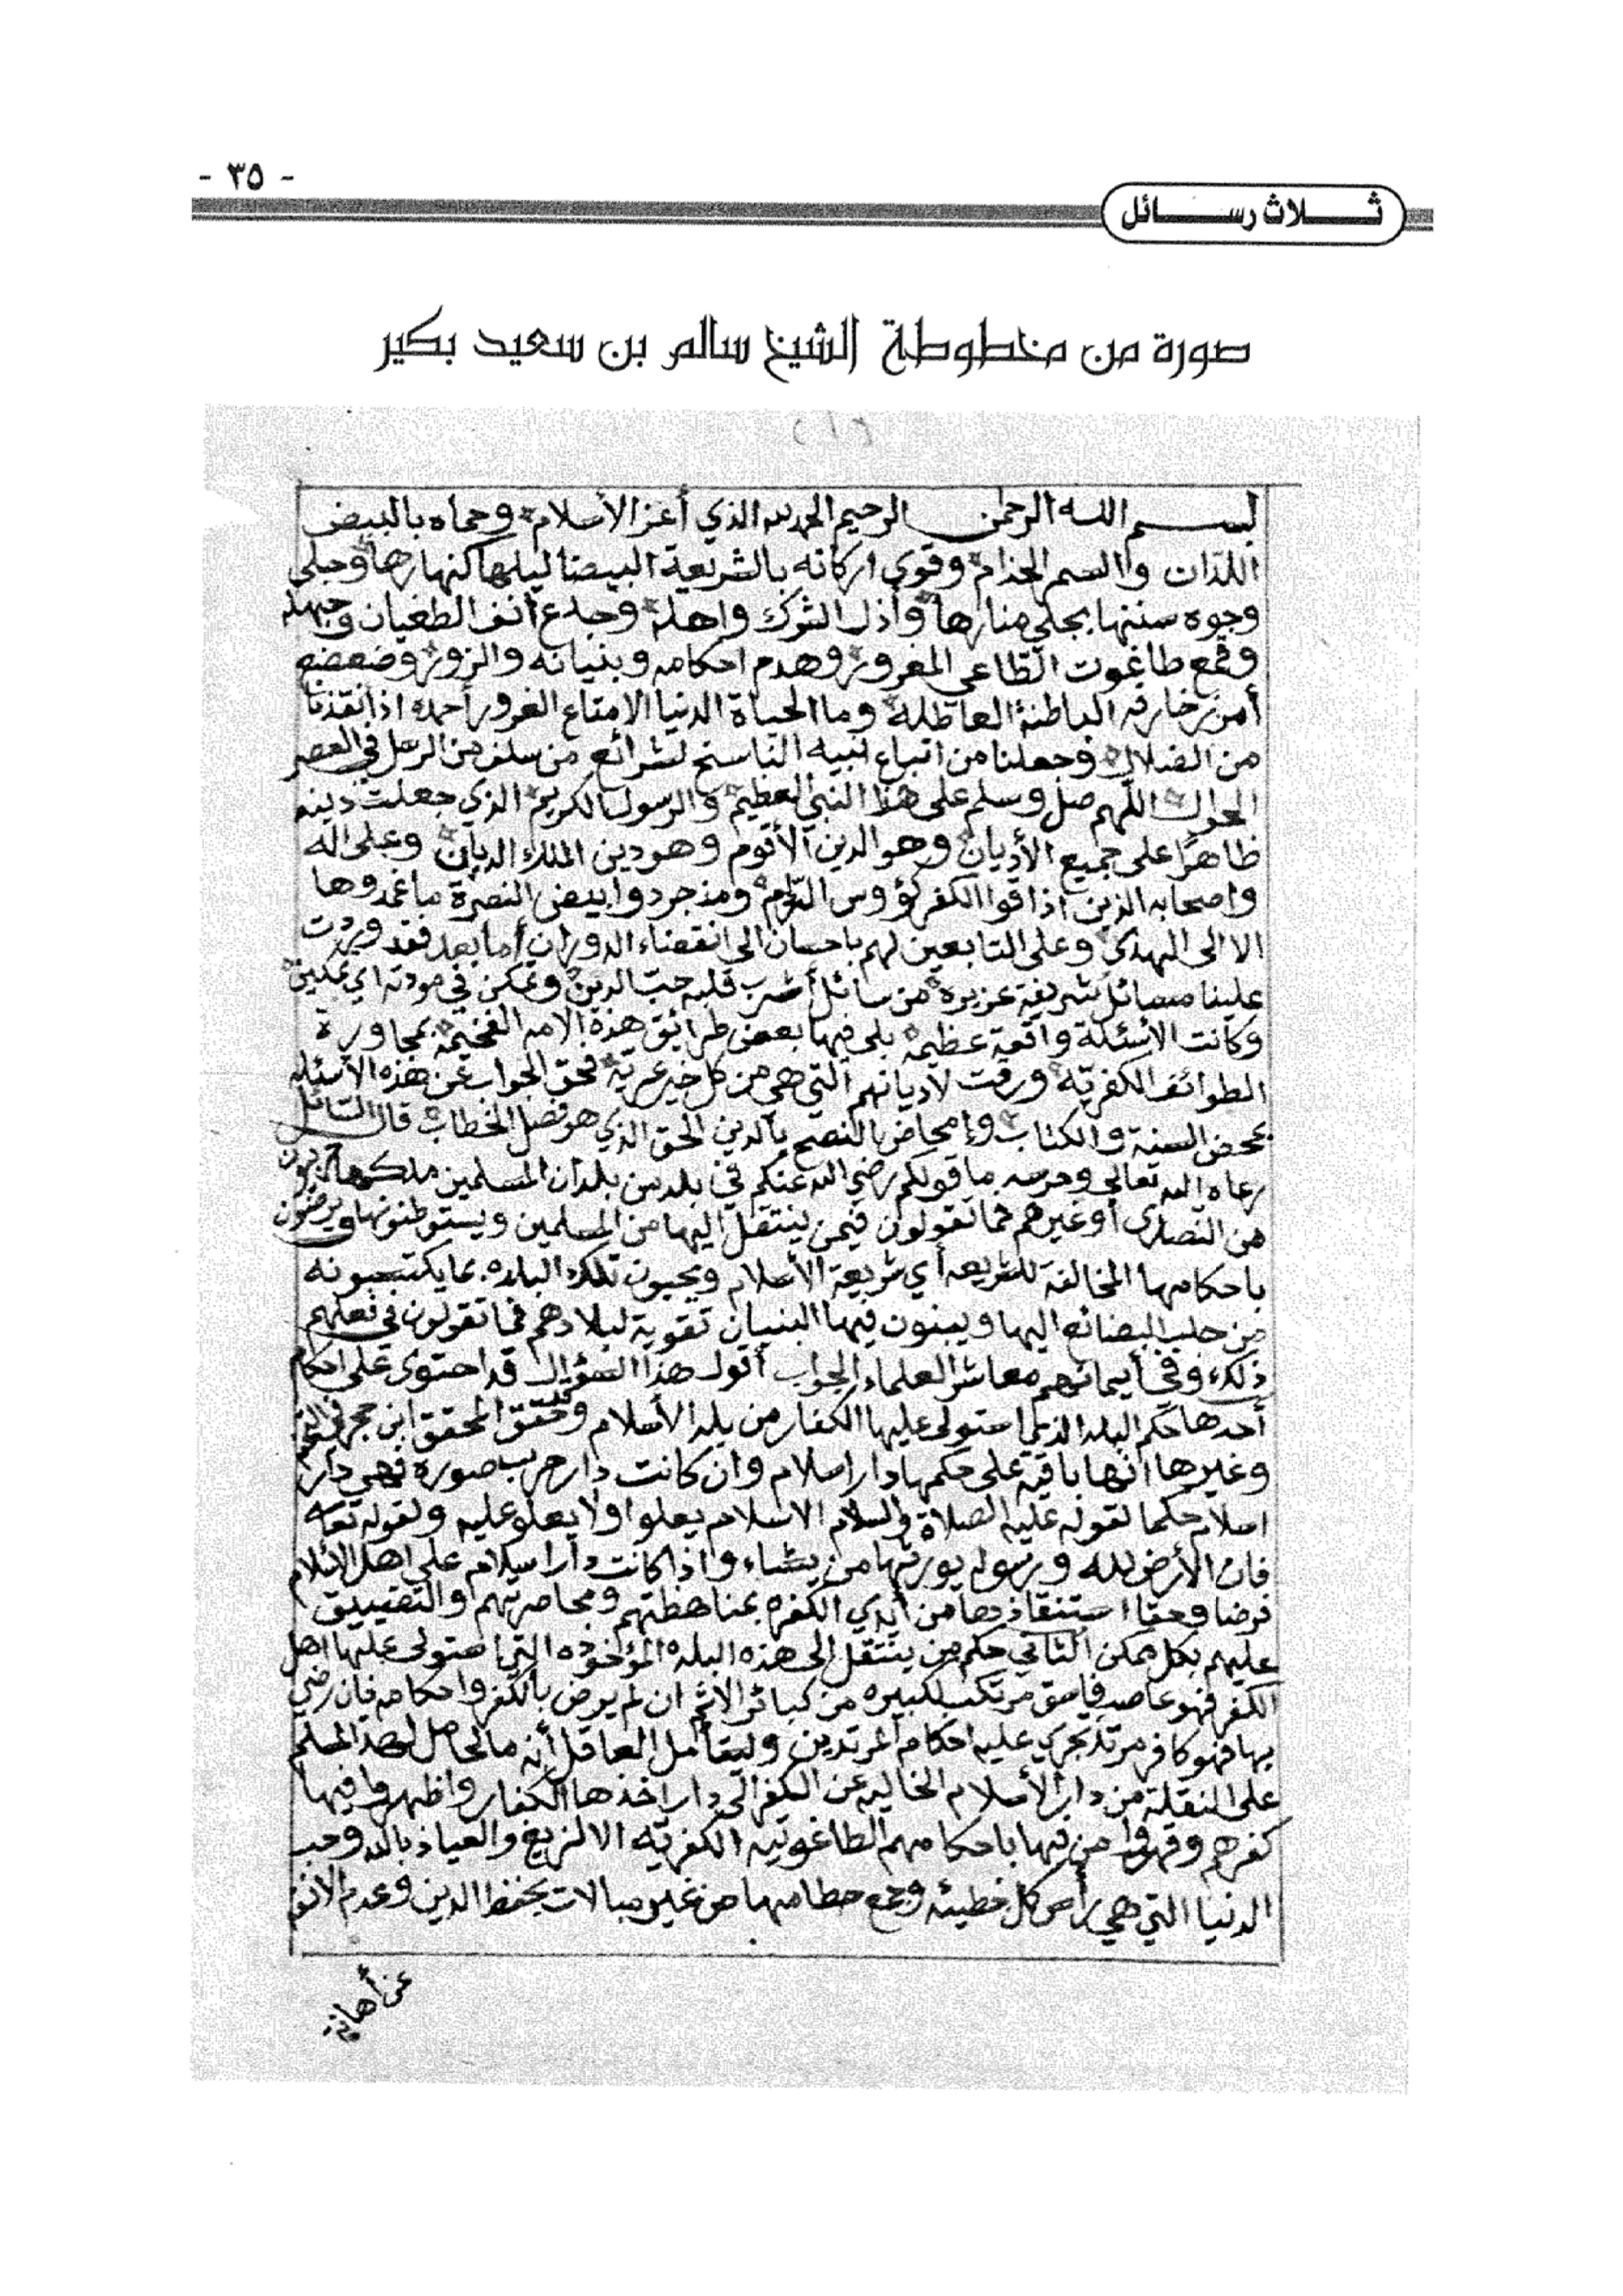 - ٣٥ -
ثـــلاث رســـائل
صورة من مخطوطة الشيخ سالم بن سعيد بكير
(١)
بسم الله الرحمن الرحيم الحمد لله الذي أعز الأسلام وحماه بالبيض
اللدان والسمر الجذام وقوى اركانه بالشريعة البيضا ليلها كنهارها وجلى
وجوه سننها بجلي منارها وأذل الشرك واهله وجدع أنف الطغيان وجهله
وقمع طاغوت الطاغي المغرور وهدم احكامه وبنيانه والزور وضعضع
أمر زخارفه الباطنة العاطلة وما الحياة الدنيا الا متاع الغرور أحمده اذ انقذنا
من الضلال وجعلنا من اتباع نبيه الناسخ لشرائع من سلف من الرسل في العصر
الخوال اللهم صل وسلم على هذا النبي العظيم والرسول الكريم الذي جعلت دينه
ظاهرا على جميع الأديان وهو الدين الأقوم وهو دين الملك الديان وعلى اله
واصحابه الذين اذاقوا الكفر كؤوس ومذ جردوا بيض النصرة ما غمدوها
الا الى الهدى وعلى التابعين لهم باحسان الى انقضاء الدوران أما بعد فقد وردت
علينا مسائل شريفة عزيزة من سائل أشرب قلبه حب الدين وتمكن في مودته اي تمكين
وكانت الأسئلة واقعة عظيمة بلي فيها بعض طرائق هذه الامه الفخيمة بمجاورة
الطوائف الكفرية ورقت لاديانهم التي هي من كل خير عرية فحق الجواب عن هذه الاسئله
بمحض السنة والكتاب وإمحاض النصح بالدين الحق الذي هو فصل الخطاب قال السائل
رعاه الله تعالى وحرسه ما قولكم رضي الله عنكم في بلد من بلدان المسلمين ملكها
من النصارى أو غيرهم فما تقولون فيمن ينتقل اليها من المسلمين ويستوطنونها ويرضون
باحكامها المخالفة للشريعه أي شريعة الأسلام ويحيون تلك البلده بما يكتسبونه
من جلب البضائع اليها ويبنون فيها البنيان تقوية لبلادهم فما تقولون في فعلهم
ذلك وفي أيمانهم معاشر العلماء الجواب أقول هذا السؤال قد احتوى على احكام
أحدها حكم البلد الذي استولى عليها الكفار من بلد الأسلام وحقق المحقق ابن حجر في
وغيرها انها باقية على حكمها دار اسلام وان كانت دار حرب صورة فهي دار
اسلام حكما لقوله عليه الصلاة والسلام الاسلام يعلوا ولا يعلو عليه ولقوله
فان الأرض لله ورسوله يورثها من يشاء واذا كانت دار اسلام على اهل الاسلام
فرضا وحقا استنقاذها من أيدي الكفره بمناهظتهم ومحاصرتهم والتضييق
عليهم بكل ممكن الثاني حكم من ينتقل إلى هذه البلده المؤخوذه التي استولى عليها اهل
الكفر فهو عاص فاسق مرتكب لكبيره من كبائر الاثم ان لم يرض بالكفر واحكامه فان رضي
بها فهو كافر مرتد تجري عليه احكام المرتدين وليتأمل العاقل أنه ما الحامل لهذا المسلم
على النقلة من دار الأسلام الخاليه عن الكفر الى دار اخذها الكفار واظهروا فيها
كفرهم وقهروا من فيها باحكامهم الطاغوتيه الكفرية الا الزيغ والعياذ بالله وحب
الدنيا التي هي رأس كل خطيئه وجمع حطامها من غير مبالات بحفظ الدين وعدم
عن أهانة